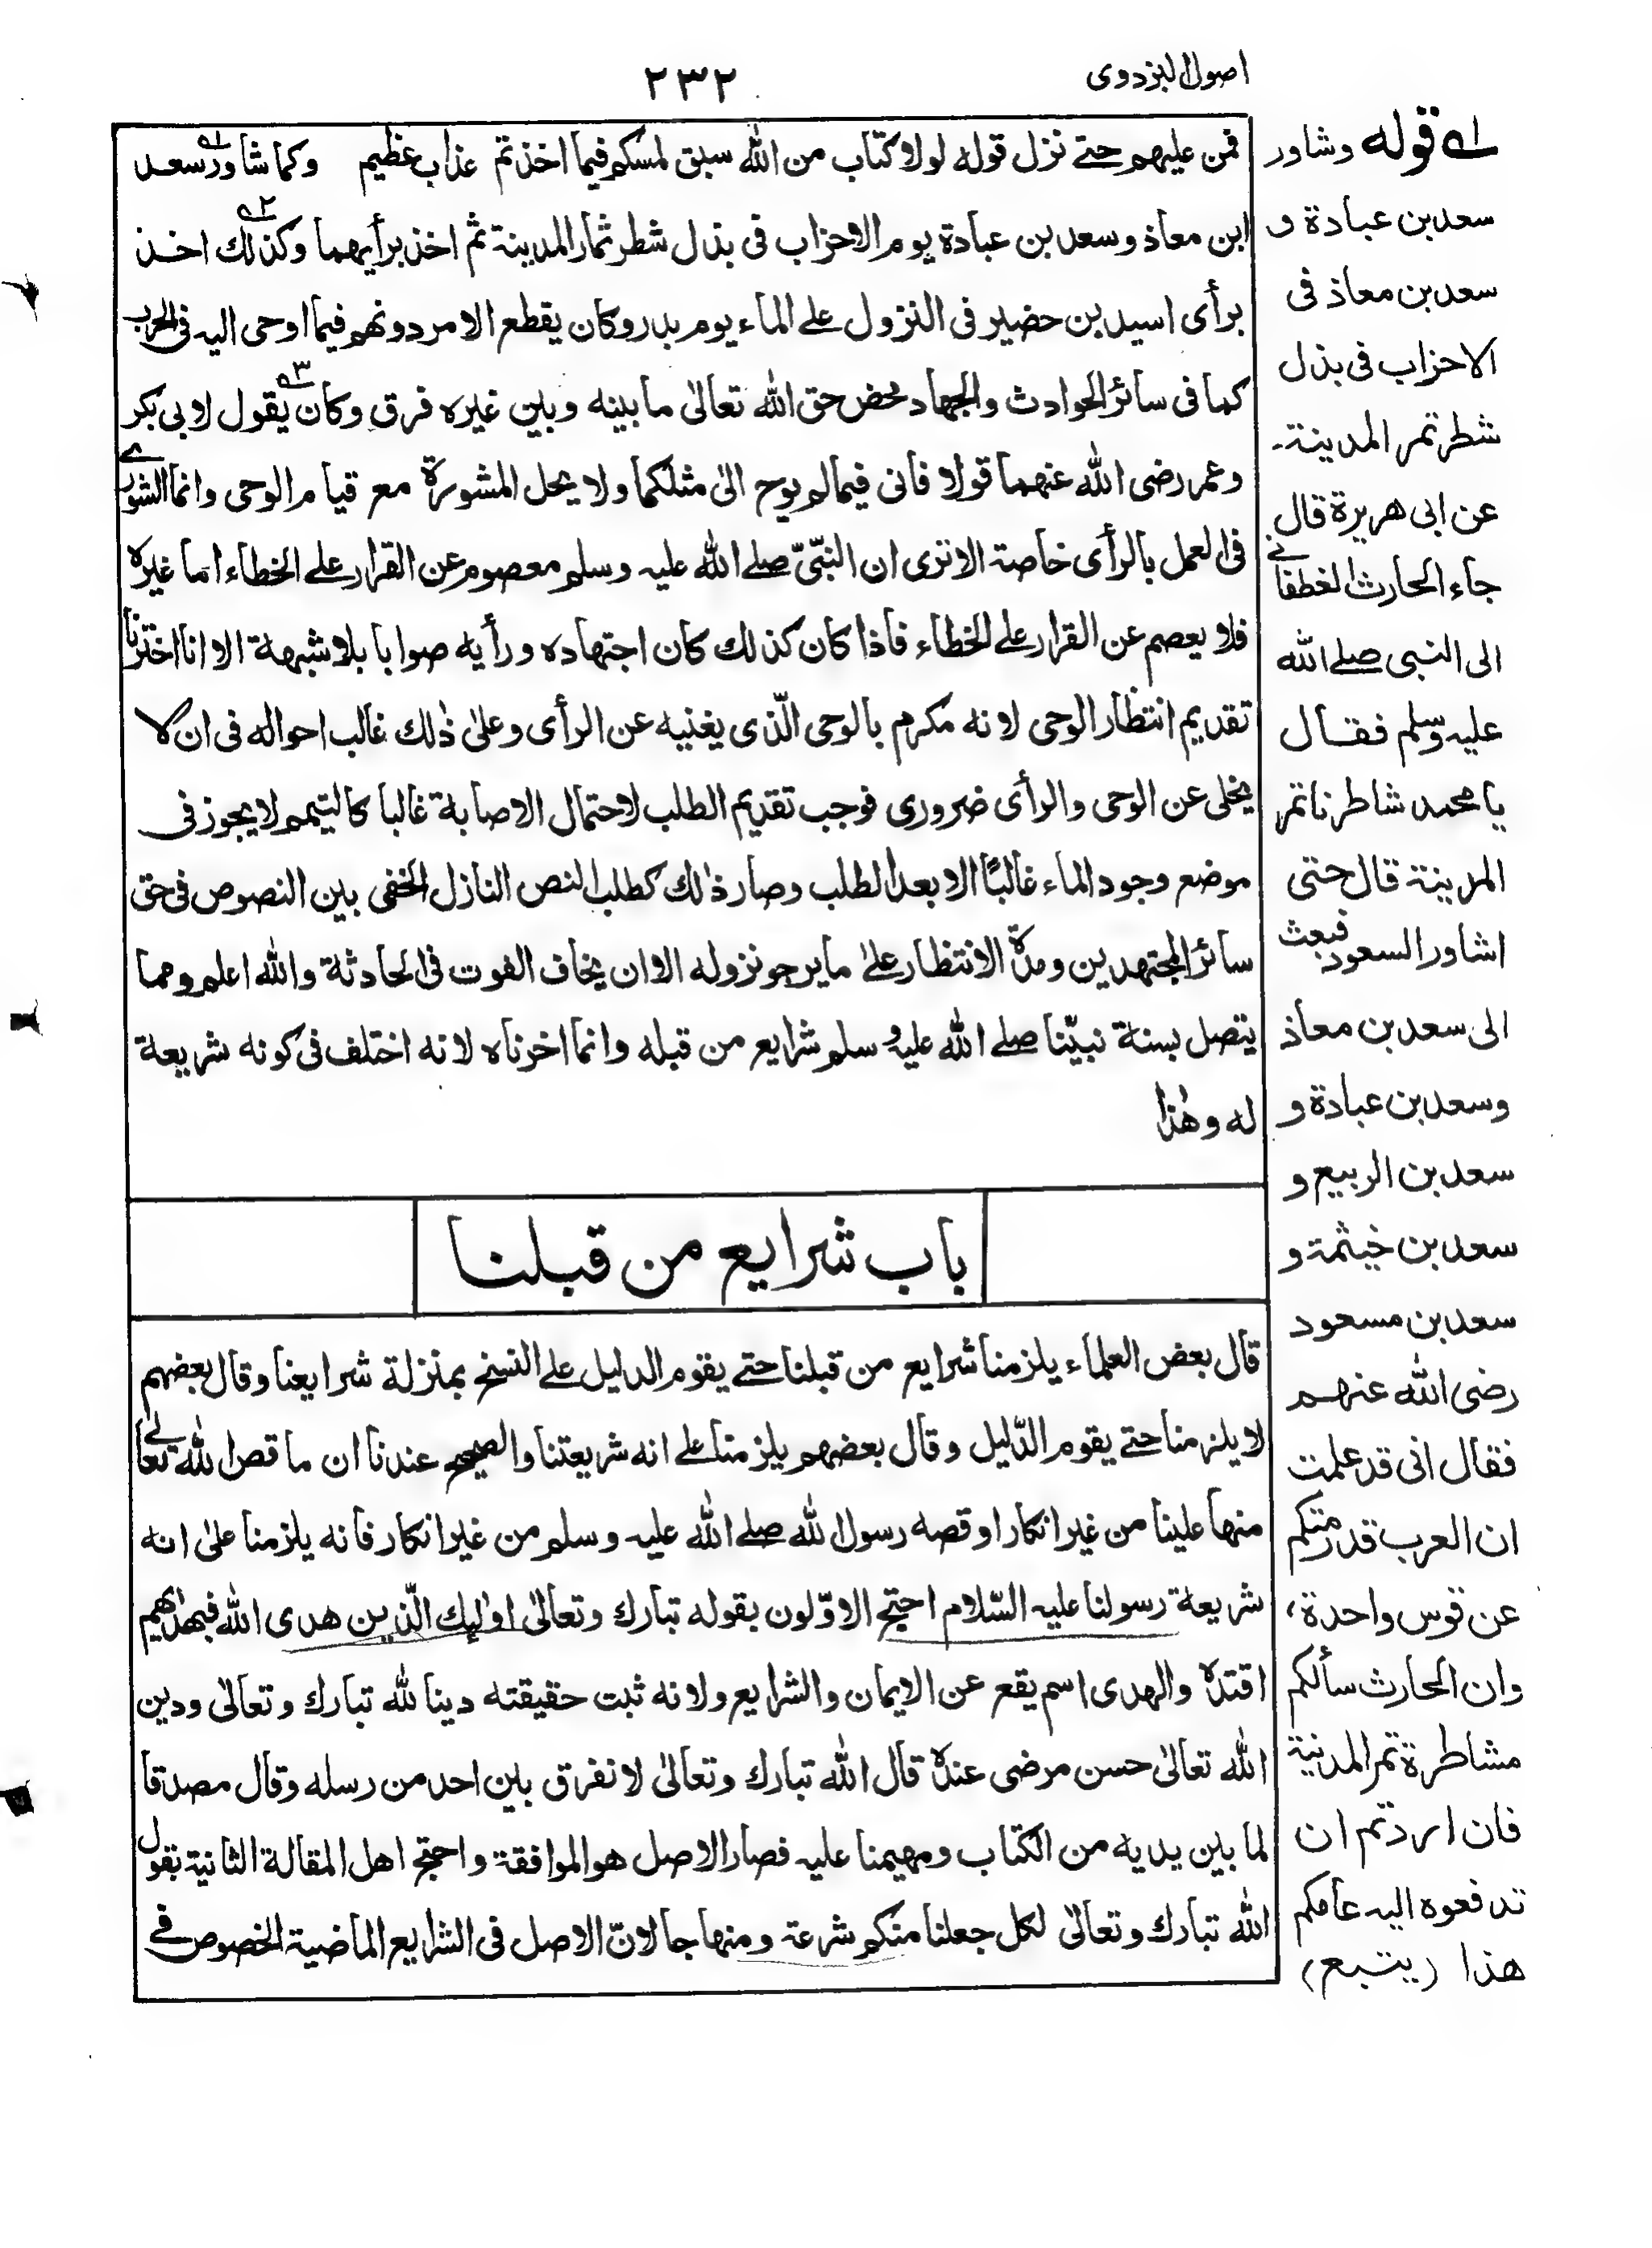 اصول البزدوى
٢٣٢
فمن عليهم حتے نزل قوله لولا كتاب من الله سبق لمسكم فيما اخذتم عذاب عظيم وكما شاور١ه سعد
ابن معاذ وسعد بن عبادة يوم الاحزاب فى بذل شطر ثمار المدينة ثم اخذ برأيهما وكذلك٢ه اخذ
برأى اسيد بن حضير فى النزول علے الماء يوم بدر وكان يقطع الامر دونهم فيما اوحى اليه فى الحرب
كما فى سائر الحوادث والجهاد محض حق الله تعالىٰ ما بينه وبين غيره فرق وكان٣ه يقول لابى بكر
وعمر رضى الله عنهما قولا فانى فيما لم يوح الىٰ مثلكما ولا يحل المشورة مع قيام الوحى وانما الشورے
فى العمل بالرأى خاصة الا ترى ان النبّىّ صلے الله عليه وسلم معصوم عن القرار علے الخطاء اما غيره
فلا يعصم عن القرار علے الخطاء فاذا كان كذلك كان اجتهاده ورأيه صوابا بلا شبهة الا انا اخترنا
تقديم انتظار الوحى لانه مكرم بالوحى الّذى يغنيه عن الرأى وعلىٰ ذٰلك غالب احواله فى ان لا
يخلى عن الوحى والرأى ضرورى فوجب تقديم الطلب لاحتمال الاصابة غالبا كالتيمم لا يجوز فى
موضع وجود الماء غالبًا الا بعد الطلب وصار ذٰلك كطلب النص النازل الخفى بين النصوص فى حق
سائر المجتهدين ومدّة الانتظار علىٰ ما يرجو نزوله الا ان يخاف الفوت فى الحادثة والله اعلم ومما
يتصل بسنة نبيّنا صلے الله عليه وسلم شرايع من قبله وانما اخرناه لانه اختلف فى كونه شريعة
له وهٰذا
باب شرايع من قبلنا
قال بعض العلماء يلزمنا شرايع من قبلنا حتے يقوم الدليل علے النسخ بمنزلة شرايعنا وقال بعضهم
لا يلزمنا حتے يقوم الدّليل وقال بعضهم يلزمنا علے انه شريعتنا والصحيح عندنا ان ما قص الله تعالےٰ
منها علينا من غير انكار او قصه رسول الله صلے الله عليه وسلم من غير انكار فانه يلزمنا علىٰ انه
شريعة رسولنا عليه السّلام احتج الاوّلون بقوله تبارك وتعالىٰ اولٰئك الّذين هدى الله فبهدٰىهم
اقتدہ والهدى اسم يقع عن الايمان والشرايع ولانه ثبت حقيقته دينا لله تبارك وتعالىٰ ودين
الله تعالىٰ حسن مرضى عندہ قال الله تبارك وتعالىٰ لا نفرق بين احد من رسله وقال مصدقا
لما بين يديه من الكتاب ومهيمنا عليه فصار الاصل هو الموافقة واحتج اهل المقالة الثانية بقول
الله تبارك وتعالىٰ لكل جعلنا منكم شرعة ومنهاجا لانّ الاصل فى الشرايع الماضية الخصوص فے
١ه قوله وشاور
سعد بن عبادة و
سعد بن معاذ فى
الاحزاب فى بذل
شطر تمر المدينة۔
عن ابى هريرة قال
جاء الحارث الغطفانے
الى النبى صلے الله
عليه وسلم فقال
يا محمد شاطرنا تمر
المدينة قال حتى
اشاور السعود فبعث
الى سعد بن معاذ
وسعد بن عبادة و
سعد بن الربيع و
سعد بن خيثمة و
سعد بن مسعود
رضى الله عنهم
فقال انى قد علمت
ان العرب قد رمتكم
عن قوس واحدة،
وان الحارث سألكم
مشاطرة تمر المدينة
فان اردتم ان
تدفعوه اليه عامكم
هذا (يتبع)